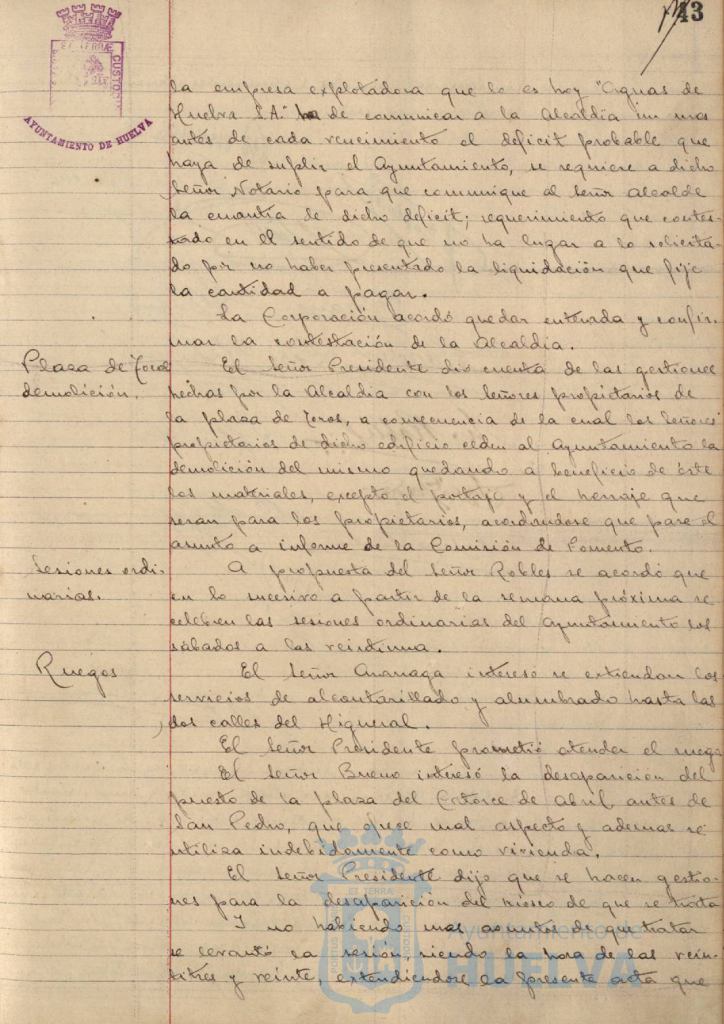 43
ET TERRAE CUSTODIA
AYUNTAMIENTO DE HUELVA
la empresa explotadora que lo es hoy "Aguas de
Huelva S.A." ha de comunicar a la Alcaldia un mes
antes de cada vencimiento el deficit probable que
haya de suplir el Ayuntamiento, se requiere a dicho
Señor Notario para que comunique al Señor Alcalde
la cuantia de dicho deficit; requerimiento que contes-
tado en el sentido de que no ha lugar a lo solicita-
do por no haber presentado la liquidación que fije
la cantidad a pagar.
La Corporación acordó quedar enterada y confir-
mar la contestación de la Alcaldia.
Plaza de Toros
demolición.
El Señor Presidente dio cuenta de las gestiones
hechas por la Alcaldia con los Señores propietarios de
la plaza de Toros, a consecuencia de la cual los Señores
propietarios de dicho edificio ceden al Ayuntamiento la
demolición del mismo quedando a beneficio de éste
los materiales, excepto el portaje y el herraje que
seran para los propietarios, acordandose que pase el
asunto a informe de la Comisión de Fomento.
Sesiones ordi-
narias.
A propuesta del Señor Robles se acordó que
en lo sucesivo a partir de la semana próxima se
celebren las sesiones ordinarias del Ayuntamiento los
sábados a las veintiuna.
Ruegos
El Señor interesó se extiendan los
servicios de alcantarillado y alumbrado hasta las
dos calles del Higueral.
El Señor Presidente prometió atender el ruego
El Señor Bueno interesó la desaparición del
puesto de la plaza del Catorce de Abril antes de
San Pedro, que ofrece mal aspecto y ademas se
utiliza indebidamente como vivienda.
El Señor Presidente dijo que se hacen gestio-
nes para la desaparición del kiosco de que se trata
Y no habiendo mas asuntos de que tratar
se levantó la sesión, siendo la hora de las vein-
titres y veinte, extendiendose la presente acta que
ET TERRA
PORTUS
CUSTODIA
Ayuntamiento de
HUELVA